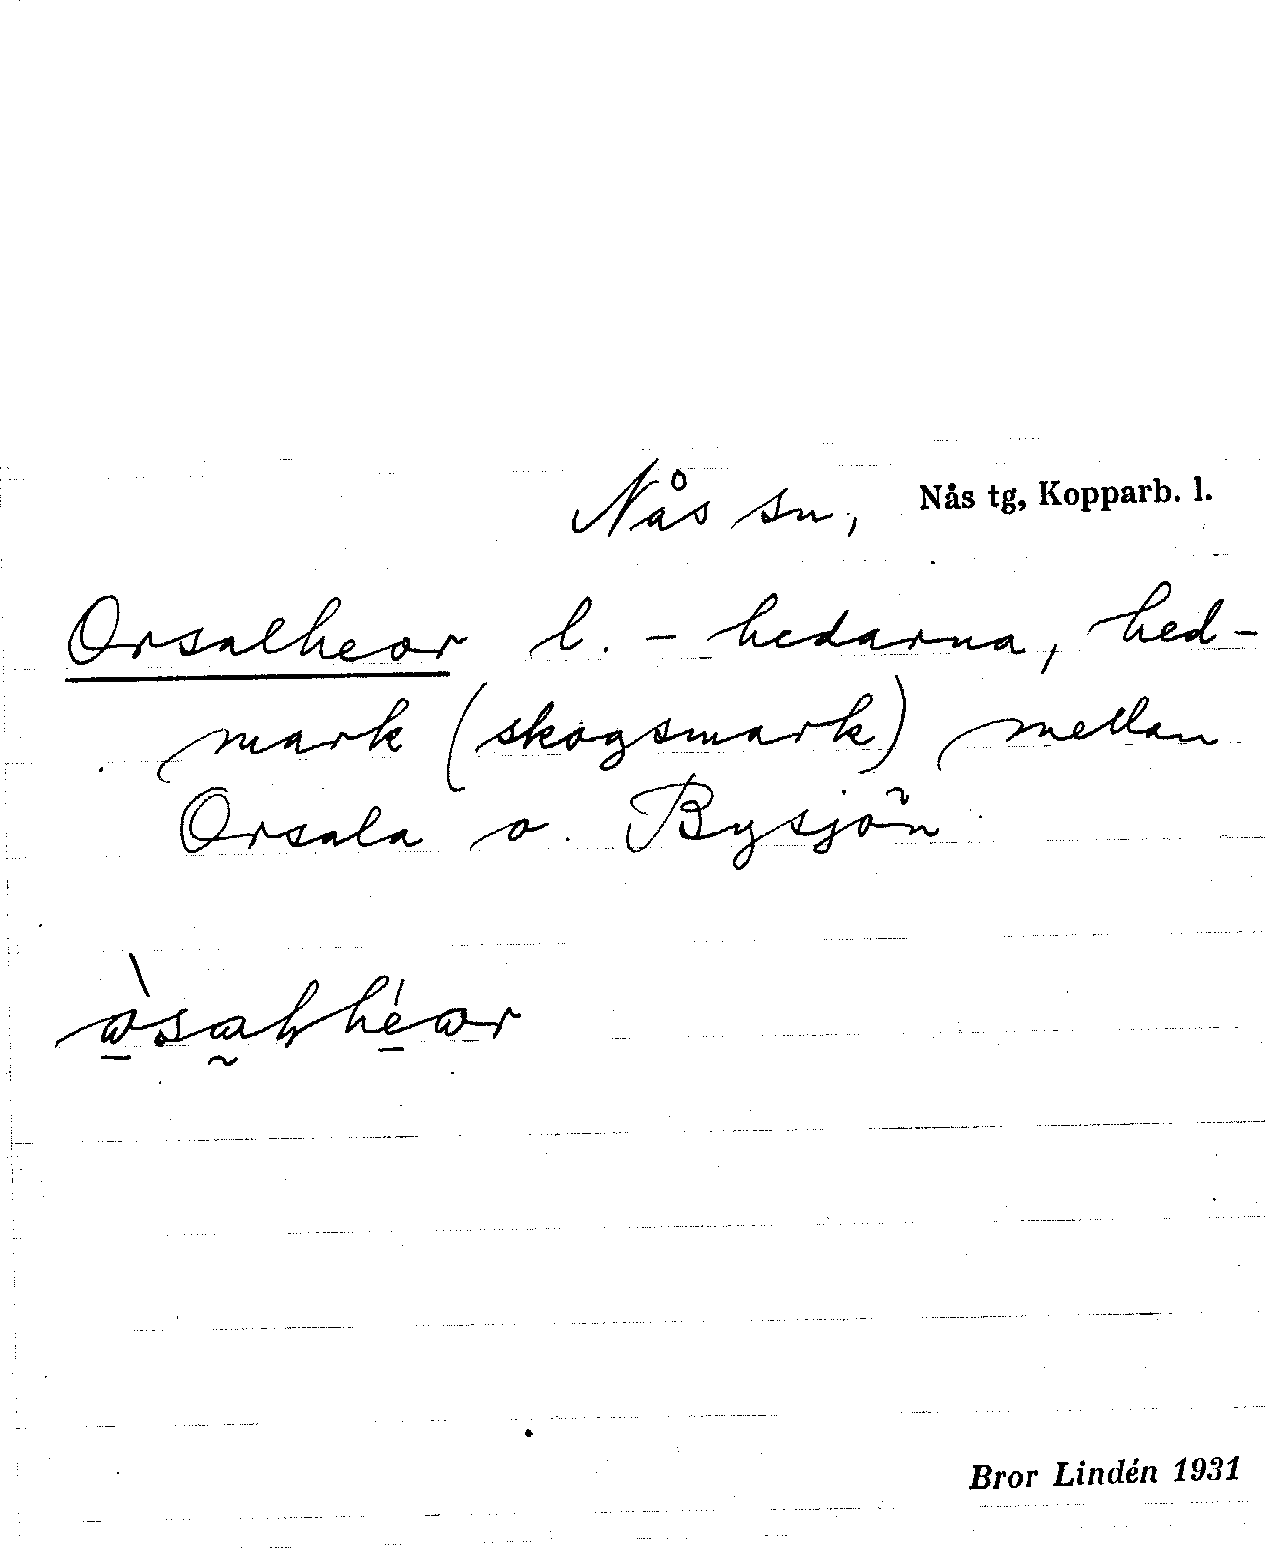 Nås sn, Nås tg, Kopparb. l.
Orsalheor l. -hedarna, hed-
mark (skogsmark) mellan
Orsala o. Bysjön
Bror Lindén 1931